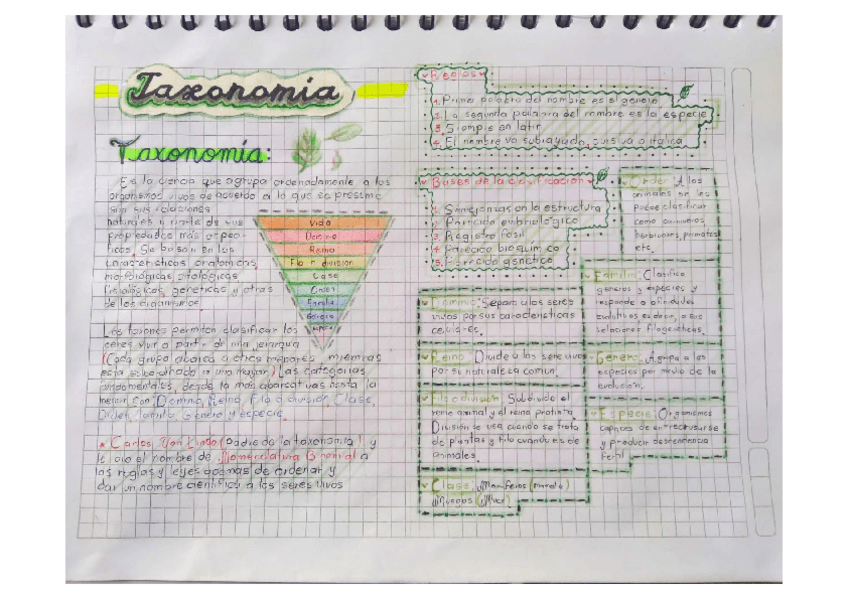 Taxonomía
Taxonomía:
Es la ciencia que agrupa ordenadamente a los
organismos vivos de acuerdo a lo que se presume
son sus relaciones
naturales a partir de sus
propiedades más especi-
ficas. Se basan en las
características anatomicas,
morfológicas, citológicas,
fisiológicas, genéticas y otras
de los organismos
Vida
Dominio
Reino
Filo o división
Clase
Orden
Familia
Género
Los taxones permiten clasificar los
seres vivo a partir de una jerarquia
(Cada grupo abarca a otros menores, mientras
esta subordinado a uno mayor) Las categorias
fundamentales, desde la mas abarcativas hasta la
menor son Dominio, Reino, Filo o división, Clase,
Orden, familia, Género y especie.
* Carlos Von Lineo (Padre de la taxonomía) y
le dio el nombre de Nomenclatura Binomial a
las reglas y leyes ademas de ordenar y
dar un nombre cientifico a los seres vivos
Reglas
1. Primer palabra del nombre es el género
2. La segunda palabra del nombre es la especie
3. Siempre en latin
4. El nombre va subrayado, cursiva o italica
Bases de la clasificación
1. Semejanzas en la estructura
2. Parecido embriológico
3. Registro fosil
4. Parecido bioquimico
5. Parecido genetico
Dominio: Separa a los seres
vivos por sus caracteristicas
celulares.
Reino: Divide a los seres vivos
por su naturaleza comun.
Filo o división: Subdividide el
reino animal y el reino protista.
División se usa cuando se trata
de plantas y filo cuando es de
animales.
Clase: Mamiferos
Musgos
Orden: A los
animales se les
puede clasificar
como carnivoros,
primates
etc.
Familia: Clasifica
generos y especies y
responde a afinidades
evolutivas es decir, a sus
relaciones filogeneticas.
Genero: Agrupa a las
especies por medio de la
evolución.
Especie: Organismos
capaces de entrecruzarse
y producir descendencia
fertil